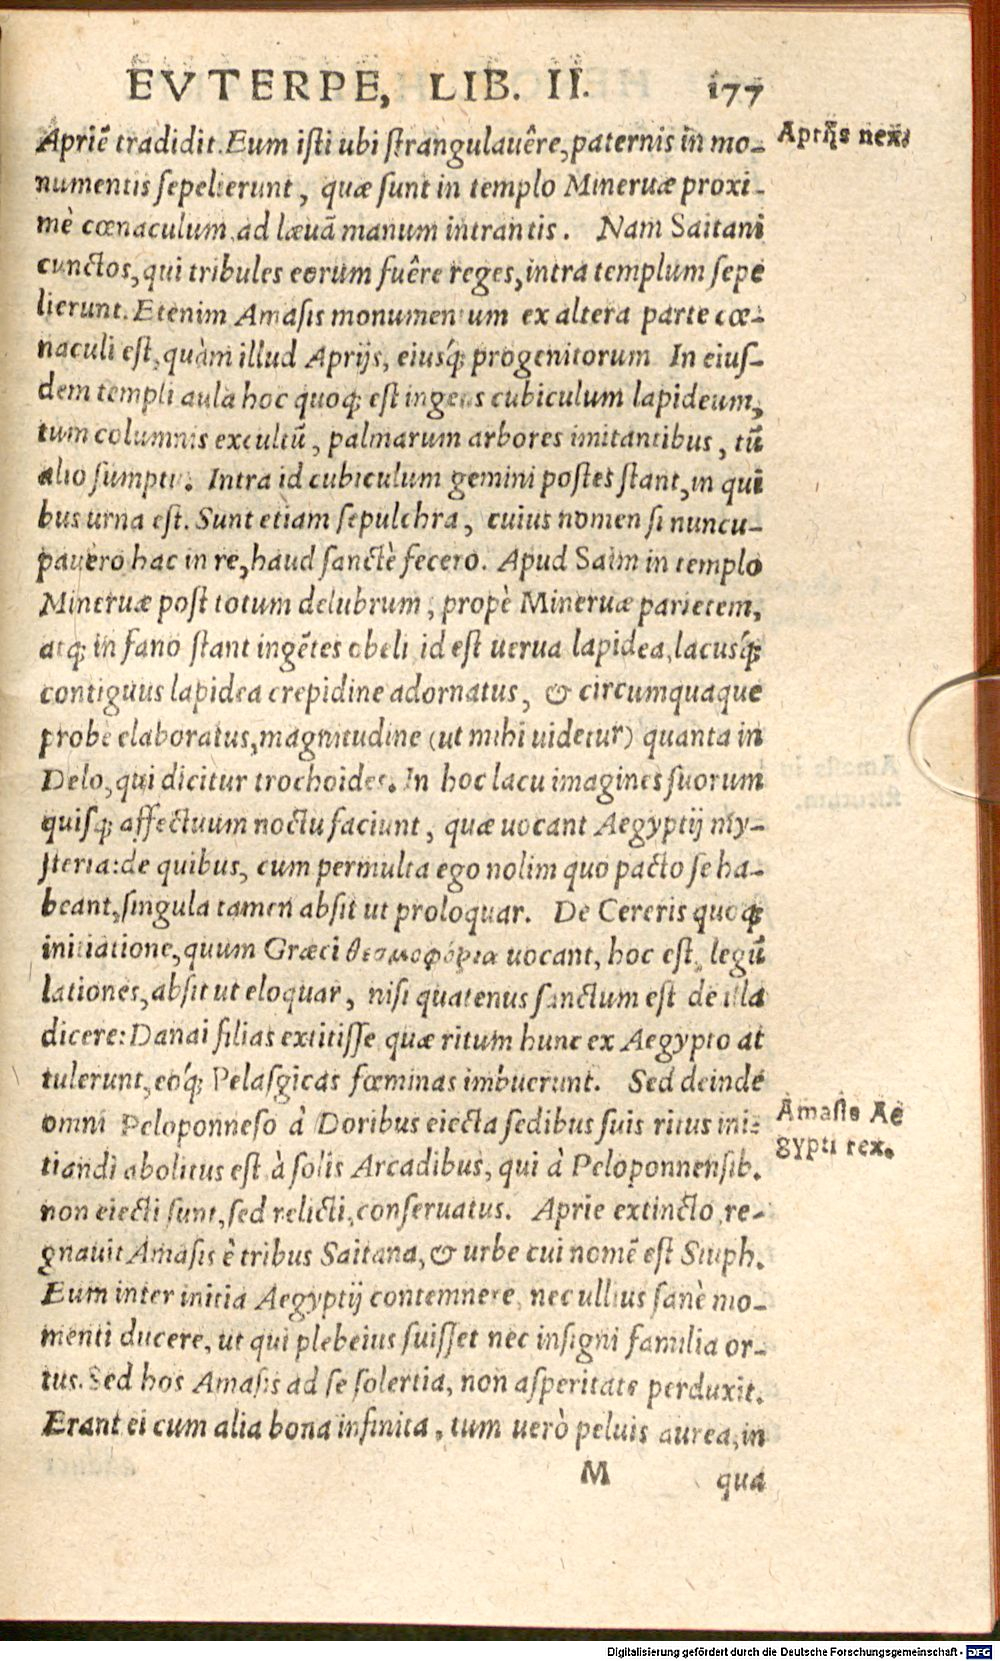 EVTERPE, LIB. II. 177
Apriẽ tradidit. Eum iſti ubi ſtrangulauêre, paternis in mo-
numentis ſepelierunt, quæ ſunt in templo Mineruæ proxi-
mè cœnaculum, ad læuã manum intrantis. Nam Saitani
cunctos, qui tribules eorum fuêre reges, intra templum ſepe
lierunt. Etenim Amaſis monumentum ex altera parte cœ-
naculi eſt, quàm illud Aprijs, eiusq́; progenitorum. In eiuſ-
dem templi aula hoc quoq; eſt ingens cubiculum lapideum,
tum columnis excultũ, palmarum arbores imitantibus, tũ
alio ſumptu. Intra id cubiculum gemini poſtes ſtant, in qui
bus urna eſt. Sunt etiam ſepulchra, cuius nomen ſi nuncu-
pauero hac in re, haud ſanctè fecero. Apud Saim in templo
Mineruæ poſt totum delubrum, propè Mineruæ parietem,
atq; in fano ſtant ingẽtes obeli id eſt uerua lapidea, lacusq́;
contiguus lapidea crepidine adornatus, & circumquaque
probe elaboratus, magnitudine (ut mihi uidetur) quanta in
Delo, qui dicitur trochoides. In hoc lacu imagines ſuorum
quiſq; affectuum noctu faciunt, quæ uocant Aegyptij my-
ſteria: de quibus, cum permulta ego nolim quo pacto ſe ha-
beant, ſingula tamen abſit ut proloquar. De Cereris quoq;
initiatione, quum Græci θεσμοφόρια uocant, hoc eſt, legũ
lationes, abſit ut eloquar, niſi quatenus ſanctum eſt de illa
dicere: Danai filias extitiſſe quæ ritum hunc ex Aegypto at
tulerunt, eoq́; Pelaſgicas fœminas imbuerunt. Sed deinde
omni Peloponneſo à Doribus eiecta ſedibus ſuis ritus ini-
tiandi abolitus eſt, à ſolis Arcadibus, qui à Peloponnenſib.
non eiecti ſunt, ſed relicti, conſeruatus. Aprie extincto, re-
gnauit Amaſis è tribus Saitana, & urbe cui nomẽ eſt Siuph.
Eum inter initia Aegyptij contemnere, nec ullius ſanè mo-
menti ducere, ut qui plebeius fuiſſet nec inſigni familia or-
tus. Sed hos Amaſis ad ſe ſolertia, non aſperitate perduxit.
Erant ei cum alia bona infinita, tum uerò peluis aurea, in
M qua
Aprijs nex.
Amaſis Ae
gypti rex.
Digitalisierung gefördert durch die Deutsche Forschungsgemeinschaft - DFG